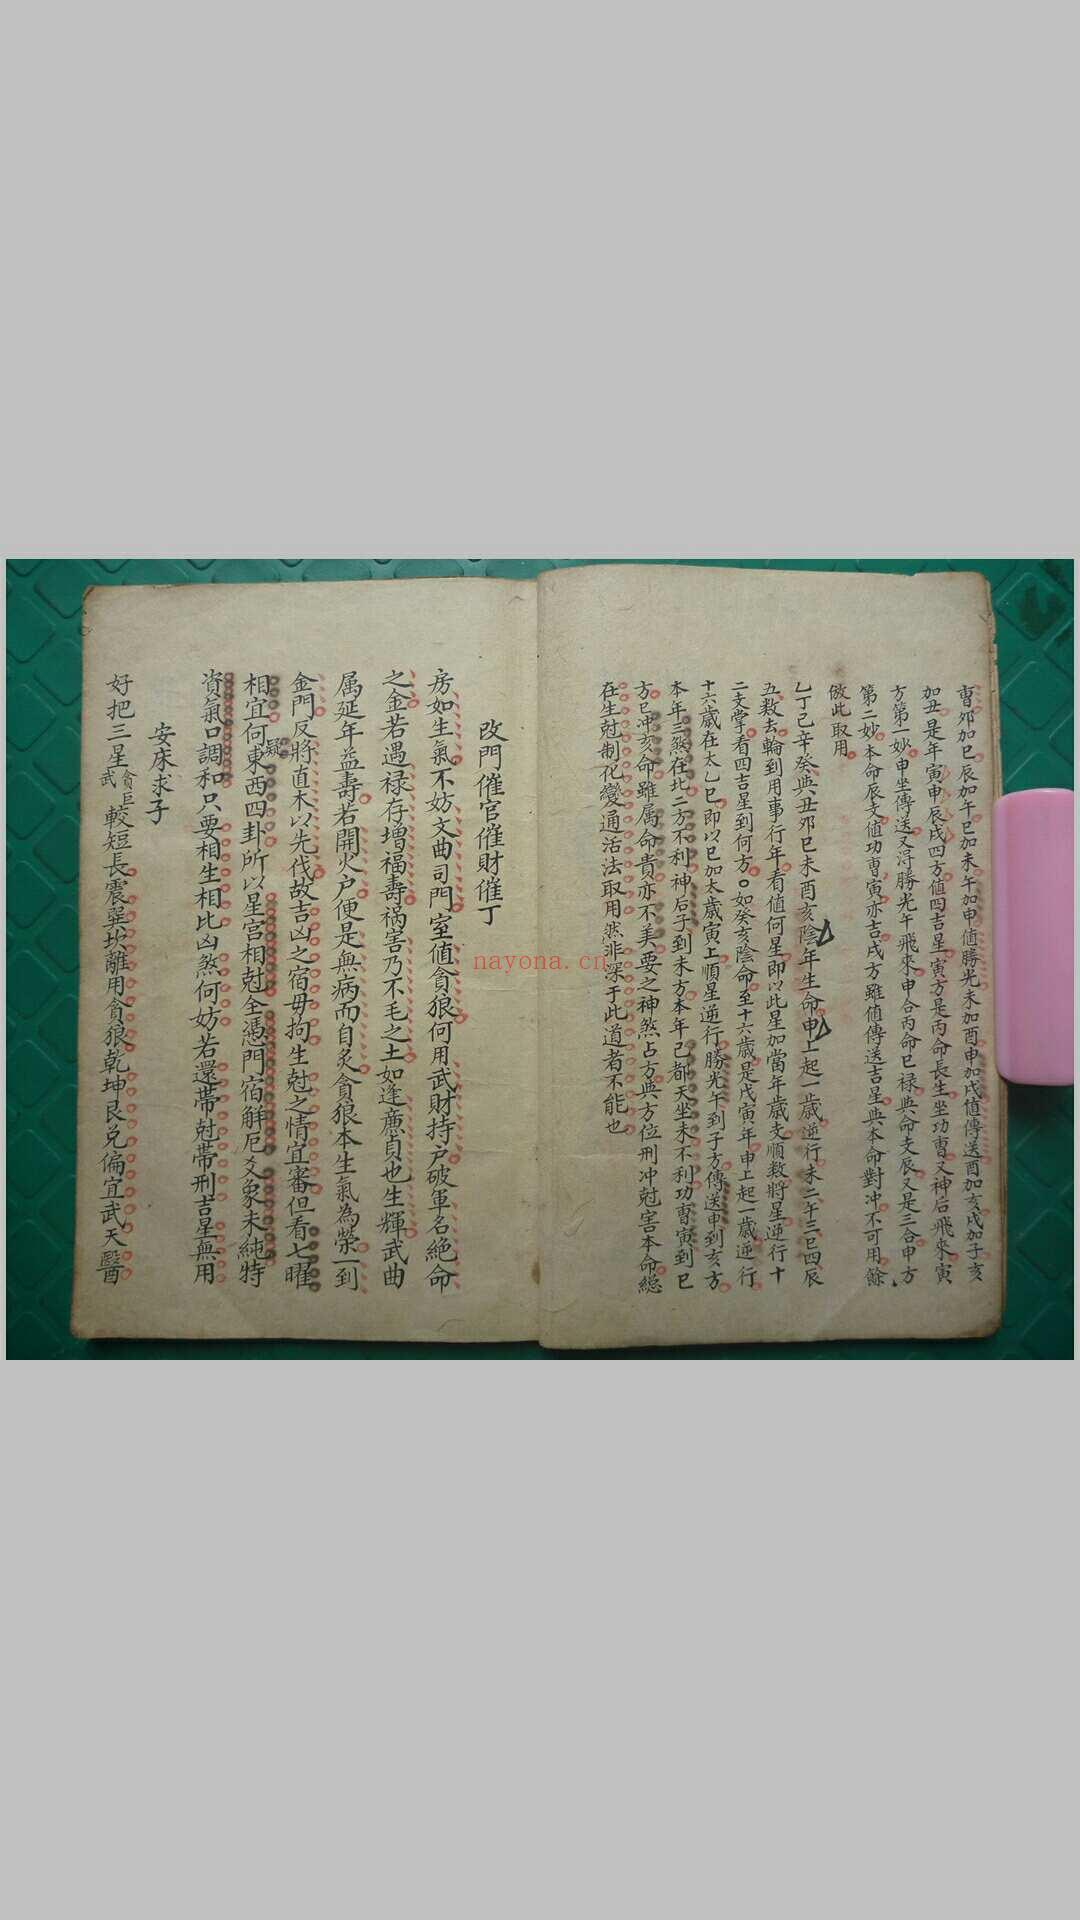 曺夘加巳辰加午巳加未午加申值勝光未加酉申加戌值傳送酉加亥戌加子亥
加丑是年寅申辰戌四方值四吉星寅方是丙命長生坐功曺又神后飛來寅
方第一妙申坐傳送又淂勝光午飛來申合丙命巳禄與命支辰又是三合申方
第二妙本命辰支值功曺寅亦吉戌方雖值傳送吉星與本命對冲不可用餘
倣此取用
乙丁己辛癸與丑夘巳未酉亥陰年生命申上起一歲逆行未二午三巳四辰
五数去輪到用事行年看值何星即以此星加當年歲支順数將星逆行十
二支掌看四吉星到何方○如癸亥陰命至十六歲是戊寅年申上起一歲逆行
十六歲在太乙巳即以巳加太歲寅上順星逆行勝光午到子方傳送申到亥方
本年三煞在北二方不利神后子到未方本年己都天坐未不利功曺寅到巳
方巳冲亥命雖属命貴亦不美要之神煞占方與方位刑冲尅害本命総
在生尅制化變通活法取用然非深于此道者不能也
改門催官催財催丁
房如生氣不妨文曲司門室值貪狼何用武財持户破軍名絶命
之金若遇禄存增福壽祸害乃不毛之土如逢亷貞也生輝武曲
属延年益壽若開火户便是無病而自炙貪狼本生氣為榮一到
金門反將直木以先伐故吉凶之宿毋拘生尅之情宜審但看七曜
相宜何疑東西四卦所以星宫相尅全憑門宿解厄爻象未純特
資氣口調和只要相生相比凶煞何妨若還帶尅帶刑吉星無用
安床求子
好把三星貪巨武較短長震巽坎離用貪狼乾坤艮兑偏宜武天醫
nayona.cn